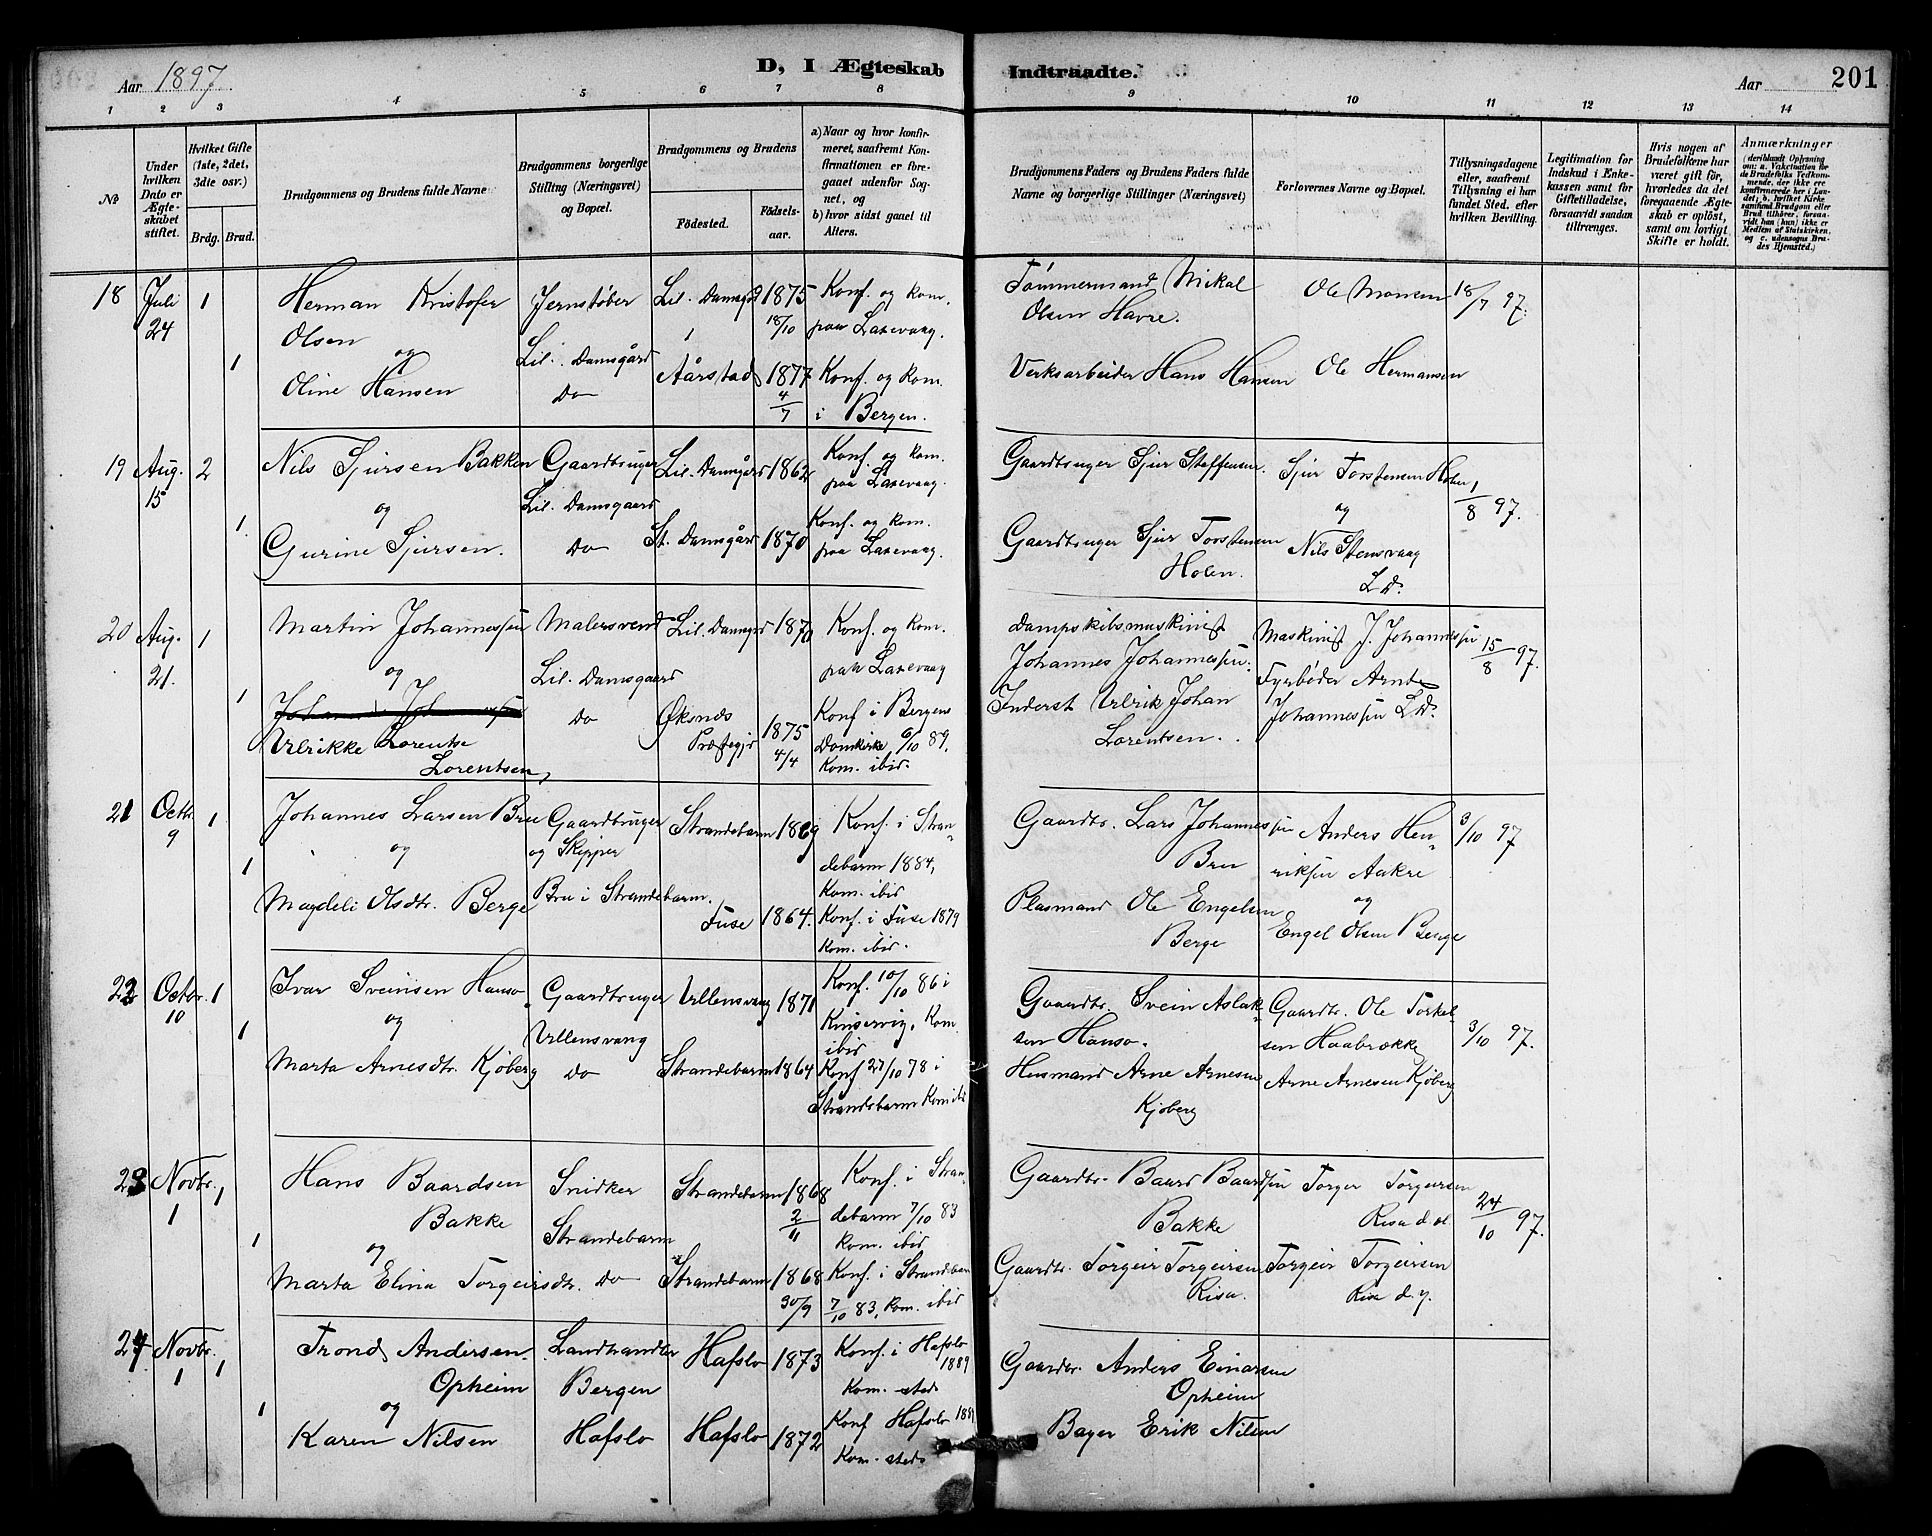 D, I Ægteskab Indtraadte.
Aar 1897.
Aar
201
1 2 3 4 5 6 7 8 9 10 11 12 13 14
No
Under hvilken Dato er Ægteskabet stiftet.
Hvilket Gifte (1ste, 2det, 3die osv.)
Brdg. Brud.
Brudgommens og Brudens fulde Navne
Brudgommens borgerlige Stilling (Næringsvei) og Bopæl.
Brudgommens og Brudens
Födested.
Födselsaar.
a) Naar og hvor konfirmeret, saafremt Konfirmationen er foregaaet udenfor Sognet, og
b) hvor sidst gaaet til Alters.
Brudgommens Faders og Brudens Faders fulde Navne og borgerlige Stillinger (Næringsvei)
Forlovernes Navne og Bopæl.
Tillysningsdagene eller, saafremt Tillysning ei har fundet Sted, efter hvilken Bevilling.
Legitimation for Indskud i Enkekassen samt for Giftetilladelse, forsaavidt saadan tiltrænges.
Hvis nogen af Brudefolkene har været gift før, hvorledes da det foregaaende Ægteskab er opløst, samt om lovligt Skifte er holdt.
Anmærkninger
(deriblandt Oplysning om: a. Vakcination for de Brudefolks Vedkommende, der ikke ere konfirmerede her i Landet; b. hvilket Kirkesamfund Brudgom eller Brud tilhører, forsaavidt han (hun) ikke er Medlem af Statskirken, og c. udensogns Brudes Hjemsted.)
18 Juli 24 1 Herman Kristofer Olsen
Jernstøber Lil. Damsgård
Lil. Damsgd 1875 18/10
Konf. og kom. paa Laxevaag.
Tømmermand Mikal Olsen Havre.
Ole Monsen
18/7 97.
og
1 Oline Hansen
Do
Aarstad 1877 4/7
Konf. og kom. i Bergen.
Verksarbeider Hans Hansen
Ole Hermansen
19 Aug. 15 2 Nils Sjursen Bakken
Gaardbruger Lil. Damsgaard
Lil. Damsgård 1862
Konf. og kom. paa Laxevaag.
Gaardbruger Sjur Steffensen.
Sjur Torstensen Holen
1/8 97.
og
1 Gurine Sjursen.
Do
St. Damsgård 1870
Konf. og kom. paa Laxevaag.
Gaardbruger Sjur Torstensen Holen.
og
Nils Stensvaag
Ld.
20 Aug. 21. 1 Martin Johannessen
Malersvend Lil. Damsgaard
Lil. Damsgd 1870
Konf. og kom. paa Laxevaag
Dampskibsmaskinist Johannes Johannessen.
Maskinist J. Johannessen
15/8 97.
og
1 Ulrikke Lorentse Lorentsen,
Do
Øksnds Præstegjd 1875 4/4
Konf i Bergens Domkirke 6/10 89. Kom. ibid.
Inderst Ulrik Johan Lorentsen.
Fyrbøder Arnt Johannessen Ld.
21 Octbr. 9 1 Johannes Larsen Bru
Gaardbruger og Skipper Bru i Strandebarm.
Strandebarm 1869
Konf. i Strandebarm 1884, Kom. ibid
Gaardbr. Lars Johannessen Bru
Anders Henriksen Aakre
3/10 97
og
1 Magdeli Olsdtr. Berge
Fuse 1864.
Konf. i Fuse 1879 kom. ibid.
Plasmand Ole Engelsen Berge
og
Engel Olsen Berge
22 Octbr. 10 1 Ivar Sveinsen Hauso
Gaardbruger Ullensvang
Ullensvang 1871
Konf. 10/10 86 i Kinservig, Kom. ibid
Gaardbr. Svein Aslaksen Hauso.
Gaardbr. Ole Torkelsen Haabrække
3/10 97.
og
1 Marta Arnesdtr. Kjøberg
Do
Strandebarm 1864
Konf 27/10 78 i Strandebarm Kom ibid
Husmand Arne Arnesen Kjøberg
Arne Arnesen Kjøberg
23 Novbr. 1 1 Hans Baardsen Bakke
Snidker Strandebarm
Strandebarm 1868 2/11
Konf. i Strandebarm 7/10 83 kom. ibid
Gaardbr. Baard Baardsen Bakke
Torger Torgeirsen Risa d. æl.
24/10 97.
og
1 Marta Elina Torgeirsdtr.
Do
Strandebarm 1868 30/9
Konf. i Strandebarm 7/10 83, kom. ibid
Gaardbr. Torgeir Torgeirsen Risa.
Torgeir Torgeirsen Risa d. y.
24 Novbr. 1 1 Trond Andersen Opheim
Landhandler Bergen
Hafslo 1873
Konf. i Hafslo 1889 Kom. steds
Gaardbr. Anders Einarsen Opheim
og
1 Karen Nilsen
Hafslo
Hafslo 1872
Konf Hafslo Kom. steds
Bager Erik Nilsen